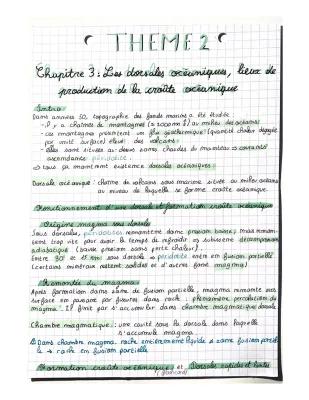 THEME 2
Chapitre 3: Les dorsales océaniques, lieux de
production de la croûte océanique
Intro
Dans années 50, topographie des fonds marins a été étudiée
- Il y a chaînes de montagnes au milieu des océans
- ces montagnes présentent un flux géothermique (quantité chaleur dégagée
par unité surface) élevé: des volcans
- elles sont situées au-dessus zones chaudes du manteau → courants
ascendants péridotite
→ tous ça montrent existence dorsales océaniques
Dorsale océanique: chaîne de volcans sous marine située au milieu océans
au niveau de laquelle se forme croûte océanique
Fonctionnement d'une dorsale et formation croûte océanique
Origine magma sous dorsale
Sous dorsales, péridotites remontent dans pression basse, mais remon-
tent trop vite pour avoir le temps de refroidir → subissent décompression
adiabatique (baisse pression sans perte chaleur).
Entre 30 et 15 km sous dorsale → péridotite entre en fusion partielle
(certains minéraux restent solides et d'autres forme magma)
Remontée du magma
Après formation dans zone de fusion partielle, magma remonte vers
surface en passant par fissures dans roche: phénomène percolation du
magma. Il finit par s'accumuler dans chambre magmatique dorsale
Chambre magmatique: une cavité sous la dorsale dans laquelle
s'accumule magma
Dans chambre magma, roche entièrement liquide ≠ zone fusion partiel
le → roche en fusion partielle
Formation croûte océanique et Dorsale rapide et lente
(flashcard)